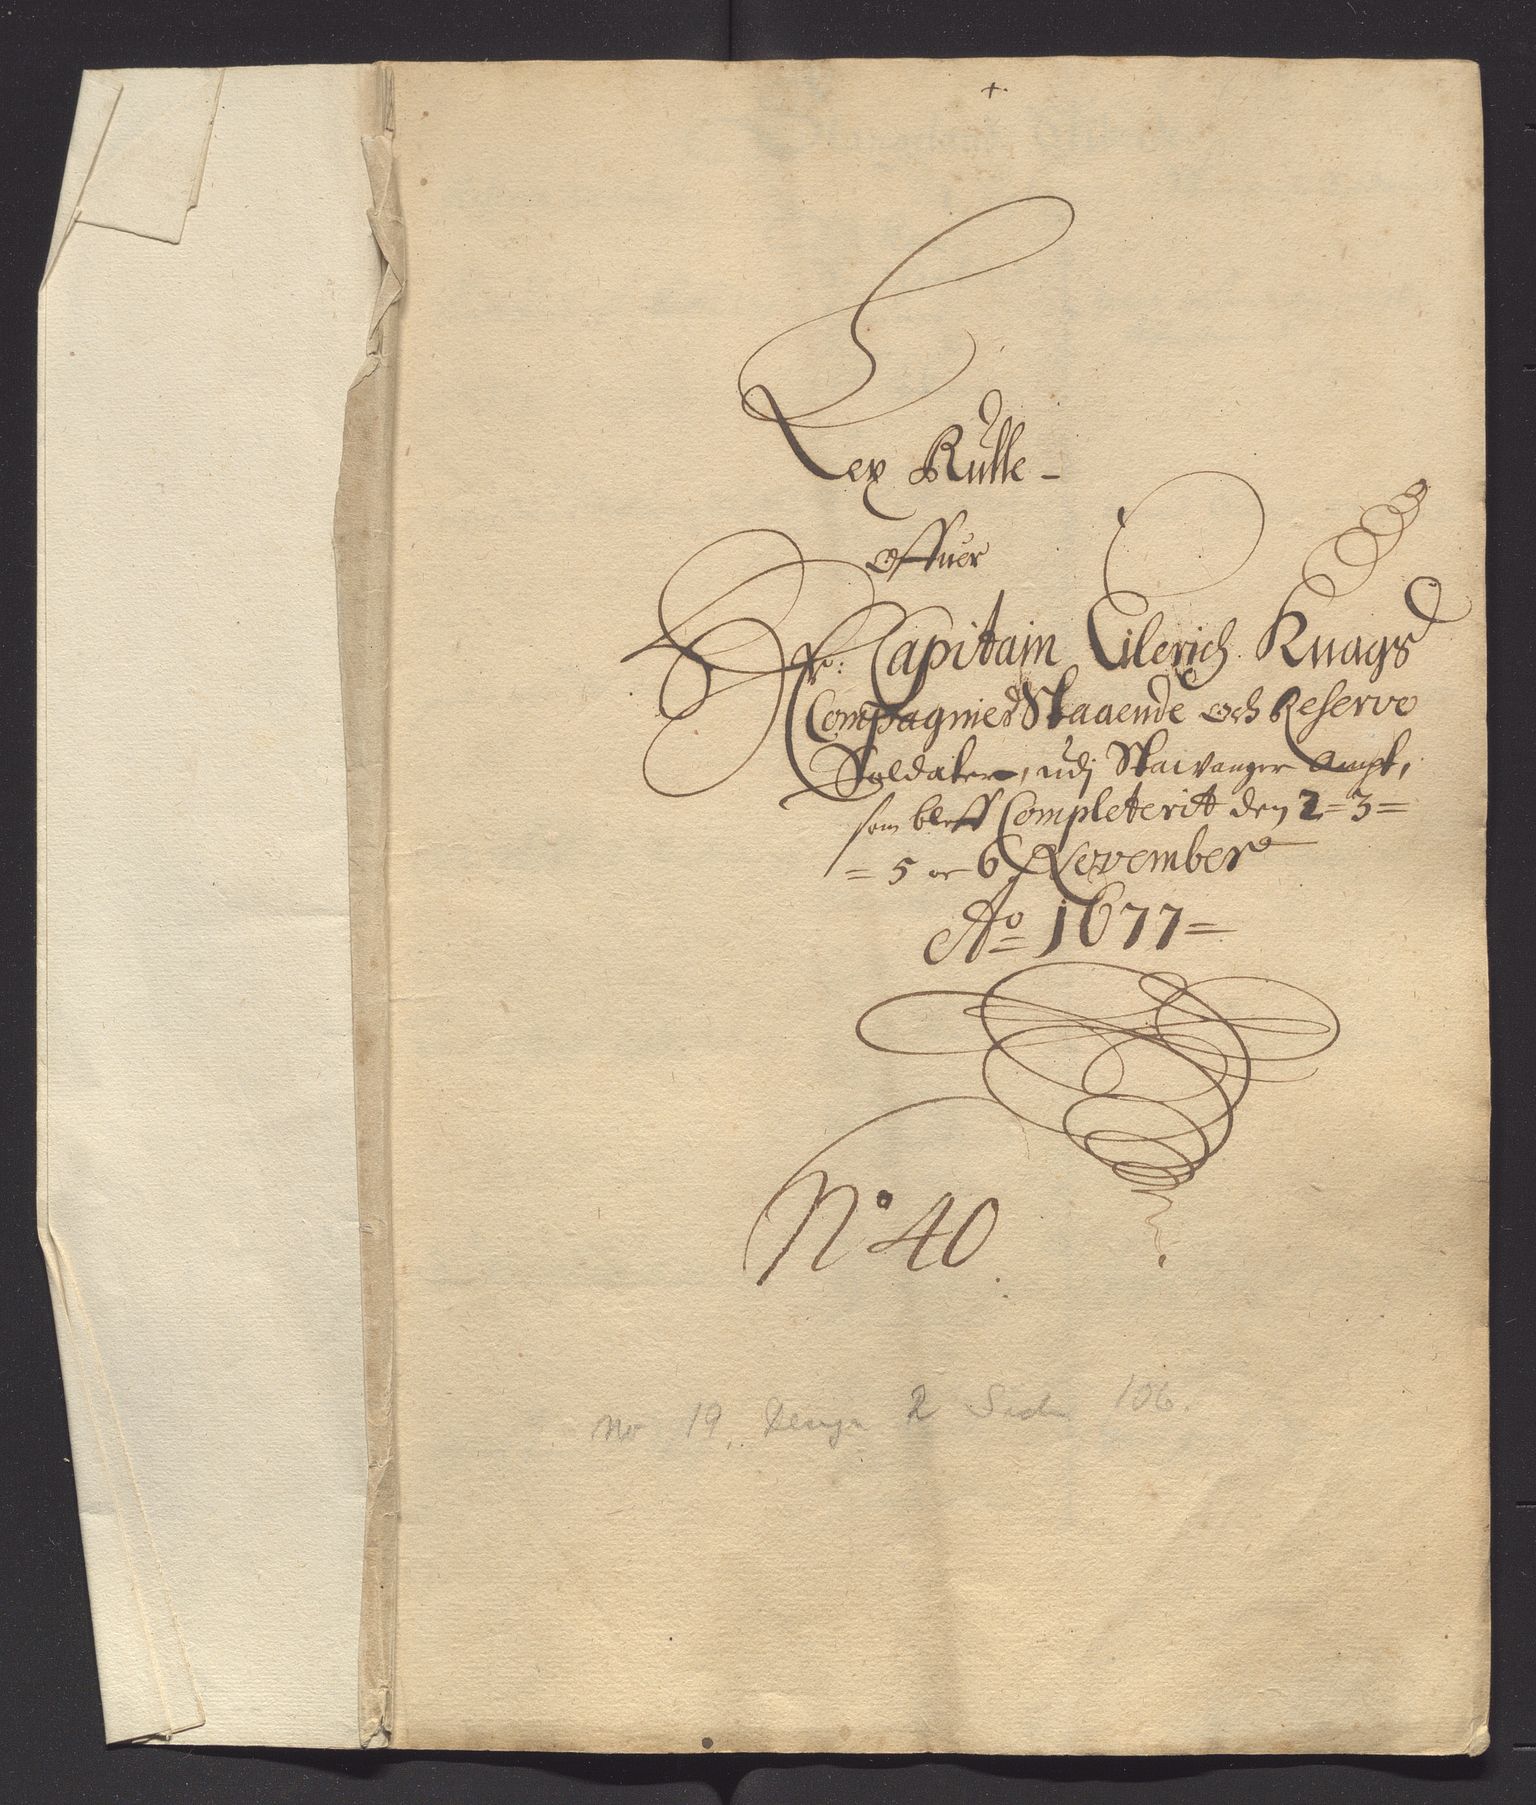 +
Lex Rulle -
offuer
Hr: Capitain Eilerich Knags
Compagnies Staaende och Reserve
Soldater, udj Stavanger Ampt,
som bleff Completerit den 2 = 3 =
= 5 oc 6 November
Ao 1677 =
No 40
No 19. 2 Side 106.